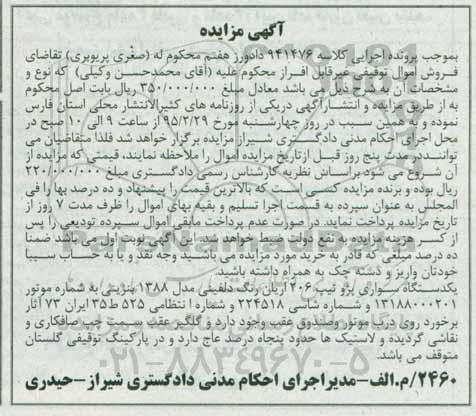 آگهی مزایده
بموجب پرونده اجرایی کلاسه ۹۴۱۴۷۶ دادورز هفتم محکوم له (صغری پریوبری) تقاضای
فروش اموال توقیفی غیرقابل افراز محکوم علیه (آقای محمدحسن وکیلی) که نوع و
مشخصات آن بشرح ذیل می باشد معادل مبلغ ۳۵۰/۰۰۰/۰۰۰ ریال بابت اصل محکوم
به از طریق مزایده و انتشار آگهی دریکی از روزنامه های کثیرالانتشار محلی استان فارس
نموده و به همین سبب در روز چهارشنبه مورخ ۹۵/۲/۲۹ از ساعت ۹ الی ۱۰ صبح در
محل اجرای احکام مدنی دادگستری شیراز مزایده برگزار خواهد شد فلذا متقاضیان می
توانند در مدت پنج روز قبل از تاریخ مزایده اموال را ملاحظه نمایند، قیمتی که مزایده از
آن شروع می شود براساس نظریه کارشناس رسمی دادگستری مبلغ ۲۲۰/۰۰۰/۰۰۰
ریال بوده و برنده مزایده کسی است که بالاترین قیمت را پیشنهاد و ده درصد بها را فی
المجلس به عنوان سپرده به قسمت اجرا تسلیم و بقیه بهای اموال را ظرف مدت ۷ روز از
تاریخ مزایده پرداخت نماید. در صورت عدم پرداخت مابقی اموال سپرده تودیعی را پس
از کسر هزینه مزایده به نفع دولت ضبط خواهد شد این آگهی نوبت اول می باشد ضمنا
ده درصد مبلغی که قادر به خرید مورد مزایده می باشید وجه نقد و یا به حساب سیبا
خودتان واریز و دسته چک به همراه داشته باشید.
یکدستگاه سواری پژو تیپ ۲۰۶ آریان رنگ دلفینی مدل ۱۳۸۸ بنزینی به شماره موتور
۱۳۱۸۸۰۰۰۲۰۱ و شماره شاسی ۲۲۴۵۱۸ و شماره انتظامی ۵۲۵ ط۳۵ ایران ۷۳ آثار
برخورد روی درب موتور وصندوق عقب وجود دارد و گلگیر عقب سمت چپ صافکاری و
نقاشی گردیده و لاستیک ها حدود پنجاه درصد عاج دارد و در پارکینگ توقیفی گلستان
متوقف می باشد.
۲۴۶۰/م.الف-مدیراجرای احکام مدنی دادگستری شیراز-حیدری
۰۲۱-۸۸۳۴۹۶۷۰-۵